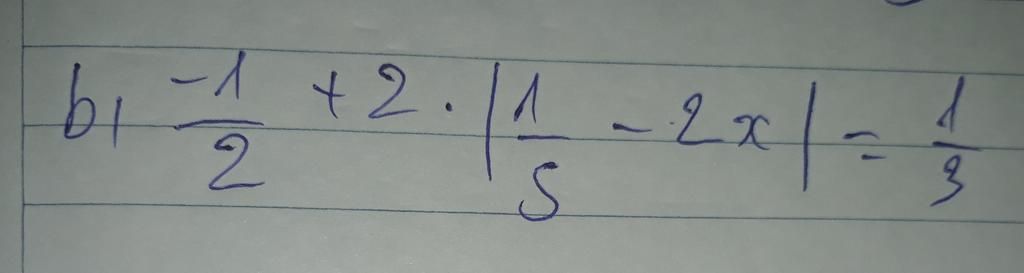 b, \frac{-1}{2} + 2 \cdot |\frac{1}{5} - 2x| = \frac{1}{3}